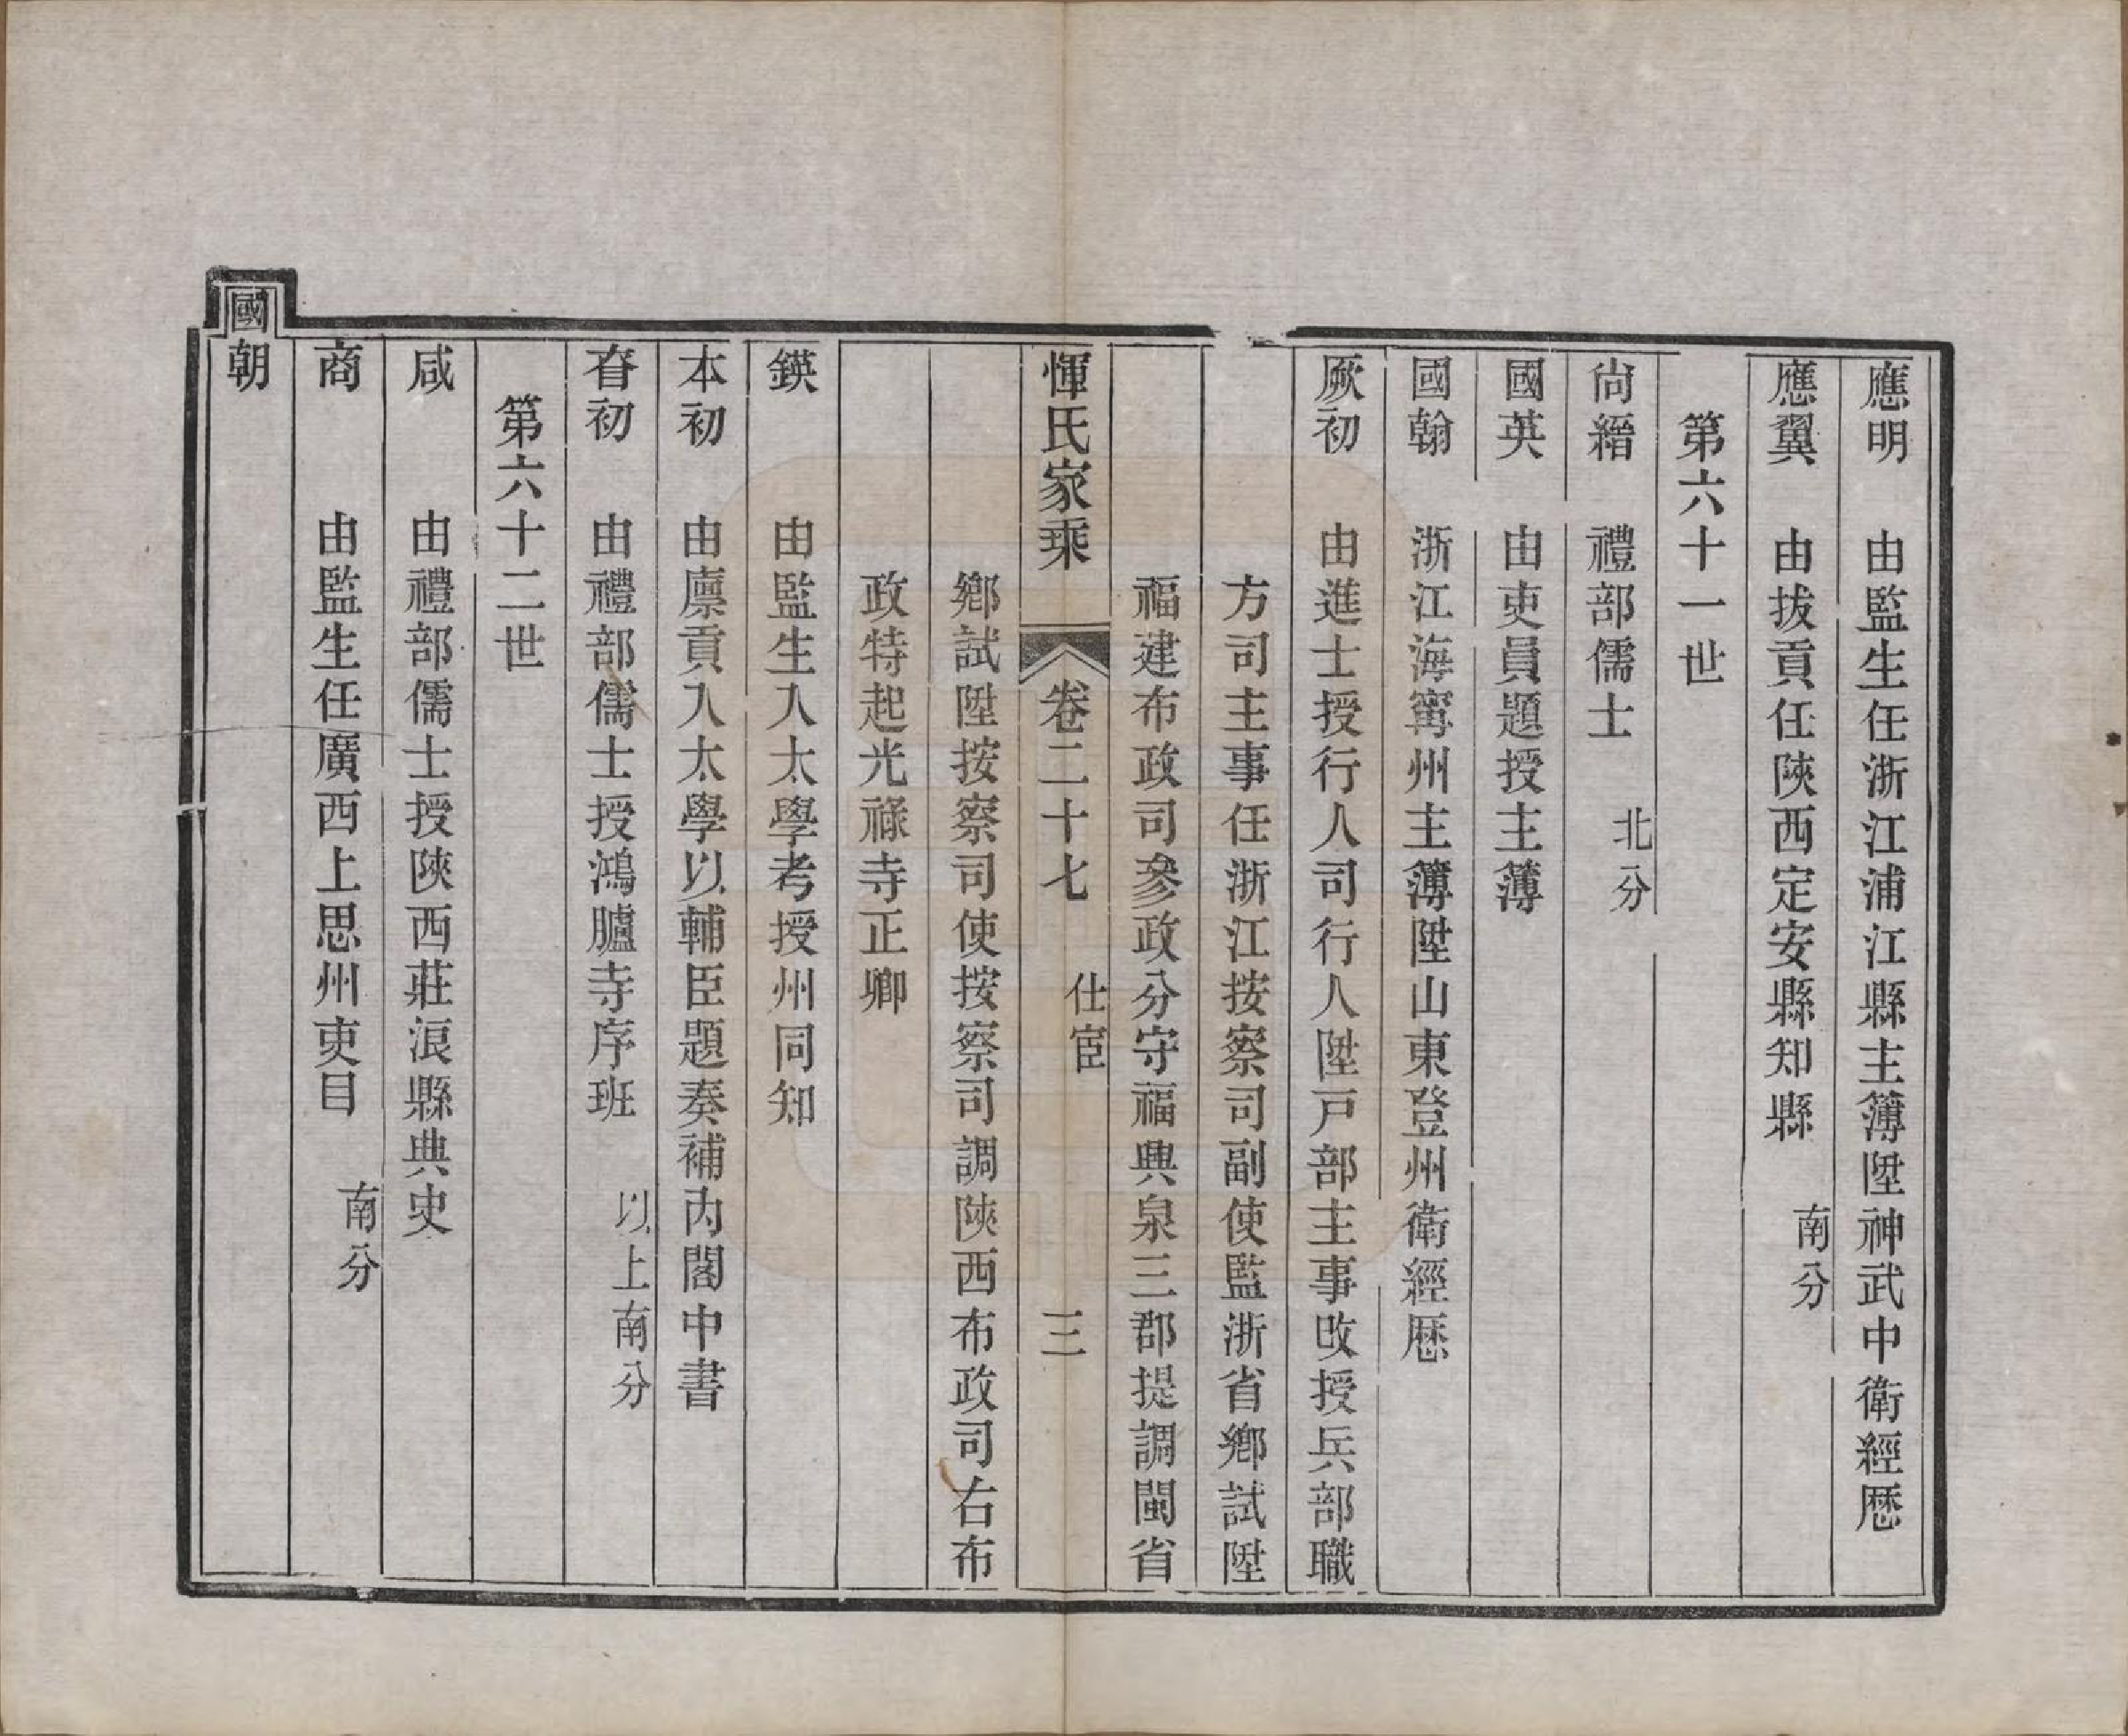 應明　由監生任浙江浦江縣主簿陞神武中衛經歷
應翼　由拔貢任陜西定安縣知縣　南分
第六十一世
尙縉　禮部儒士　北分
國英　由吏員題授主薄
國翰　浙江海甯州主簿陞山東登州衛經歷
厥初　由進士授行人司行人陞戸部主事改授兵部職
方司主事任浙江按察司副使監浙省鄉試陞
福建布政司參政分守福興泉三郡提調閩省
惲氏家乘　卷二十七　仕宦　三
鄉試陞按察司使按察司調陜西布政司右布
政特起光祿寺正卿
鍈　由監生入太學考授州同知
本初　由廪貢入太學以輔臣題奏補內閣中書
眘初　由禮部儒士授鴻臚寺序班　以上南分
第六十二世
咸　由禮部儒士授陜西莊浪縣典史
商　由監生任廣西上思州吏目　南分
國朝